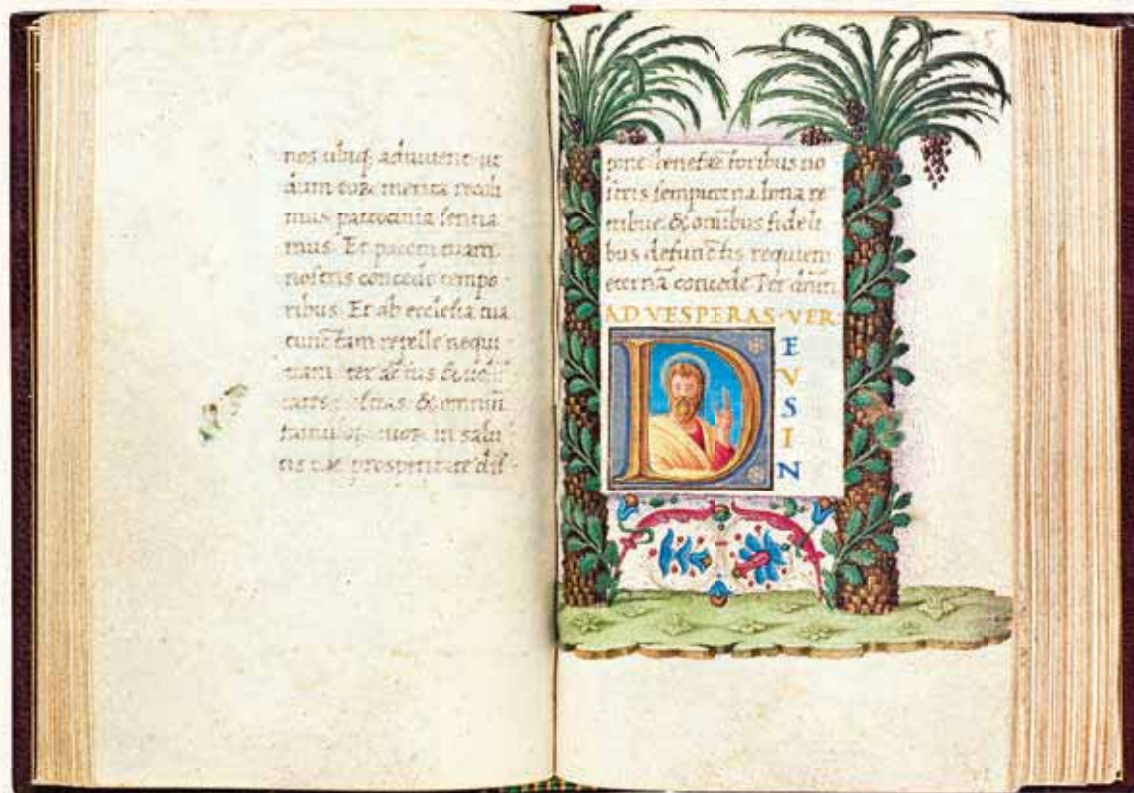 nos ubiq; adiuvent: ut
dum eoꝝ merita recoli
mus patrocinia sentia
mus. Et pacem tuam
nostris concede tempo
ribus. Et ab ecclesia tua
cunctam repelle nequi
tiam
famuloꝝ tuoꝝ in salu
tis tue prosperitate dis-
pone. benefactoribus no
stris sempiterna bona re
tribue. & omnibus fideli
bus defunctis requiem
eternã concede. Per dñm
AD VESPERAS VER
DEUSIN